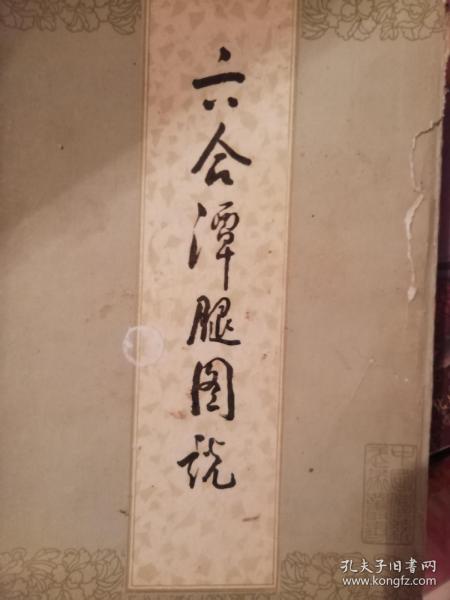 六合潭腿图说
孔夫子旧书网
www.kongfz.com